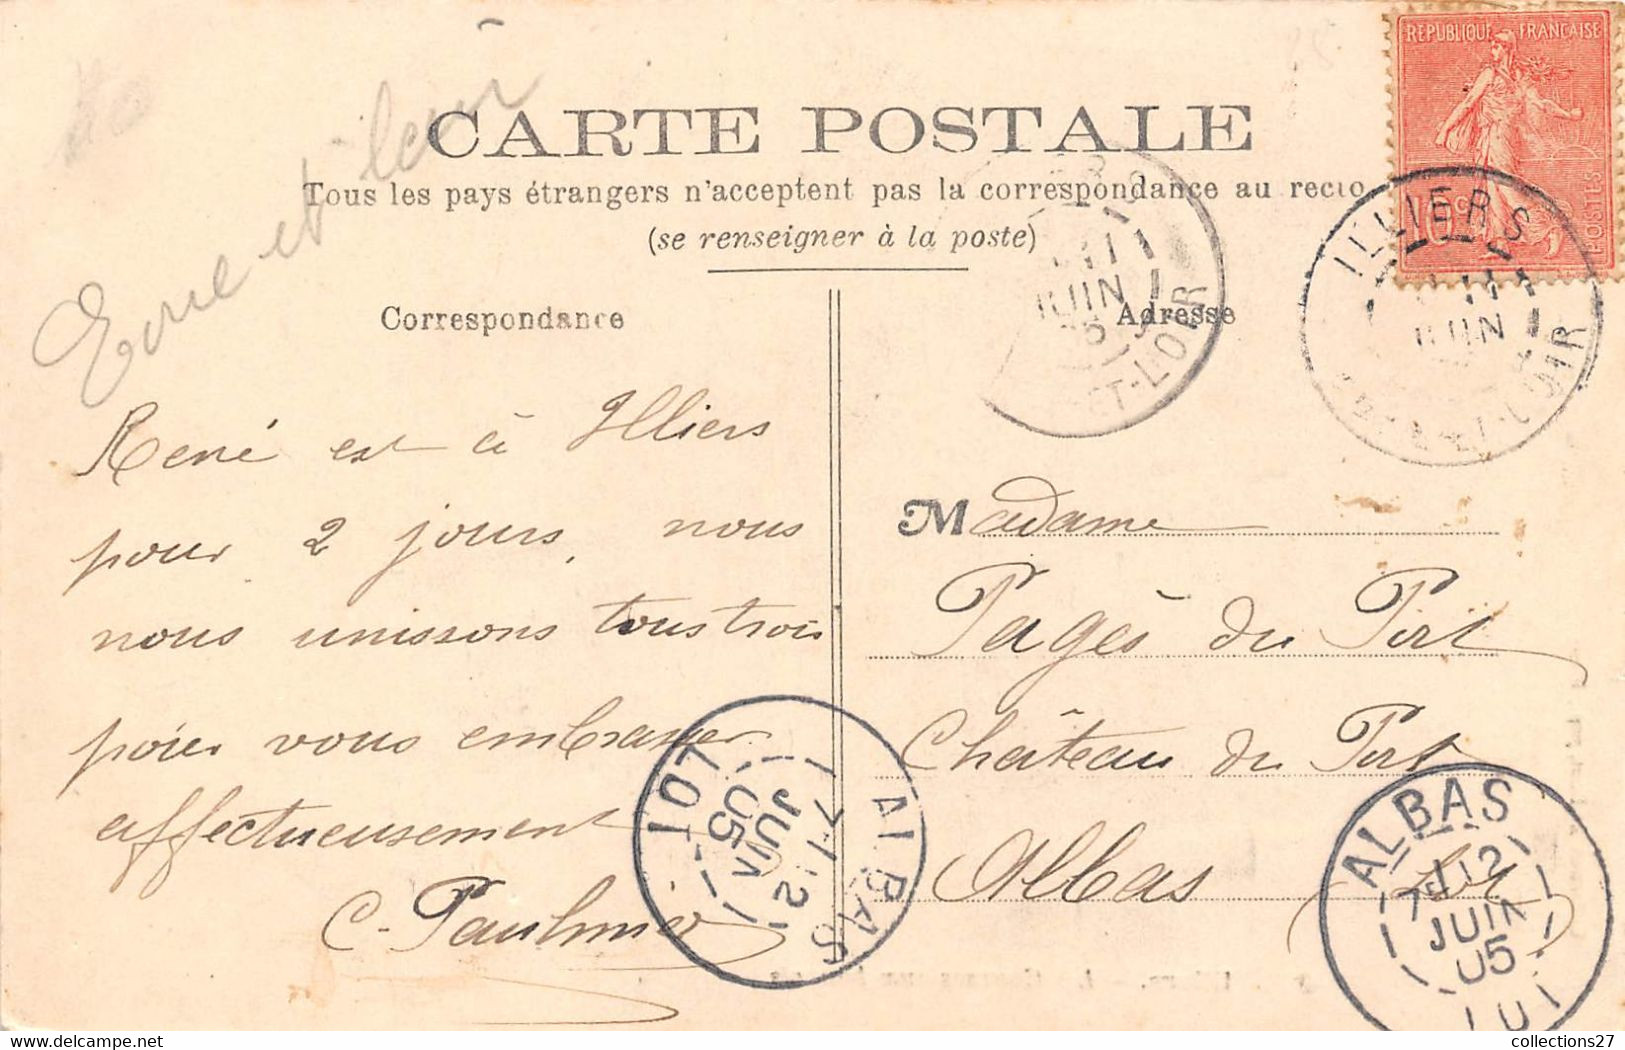 Eure et Loir
CARTE POSTALE
Tous les pays étrangers n'acceptent pas la correspondance au recto
(se renseigner à la poste)
Correspondance
René est à Illiers
pour 2 jours, nous
nous unissons tous trois
pour vous embrasser
affectueusement
C. Paulmier
Adresse
Madame
Pagès du Port
Château du Port
Albas Lot
REPUBLIQUE FRANÇAISE
10c
POSTES
ILLIERS
11
JUIN
EURE-ET-LOIR
11
JUIN
05
ET-LOIR
ALBAS
12
JUIN
05
LOT
ALBAS
7E 12
JUIN
05
collections27